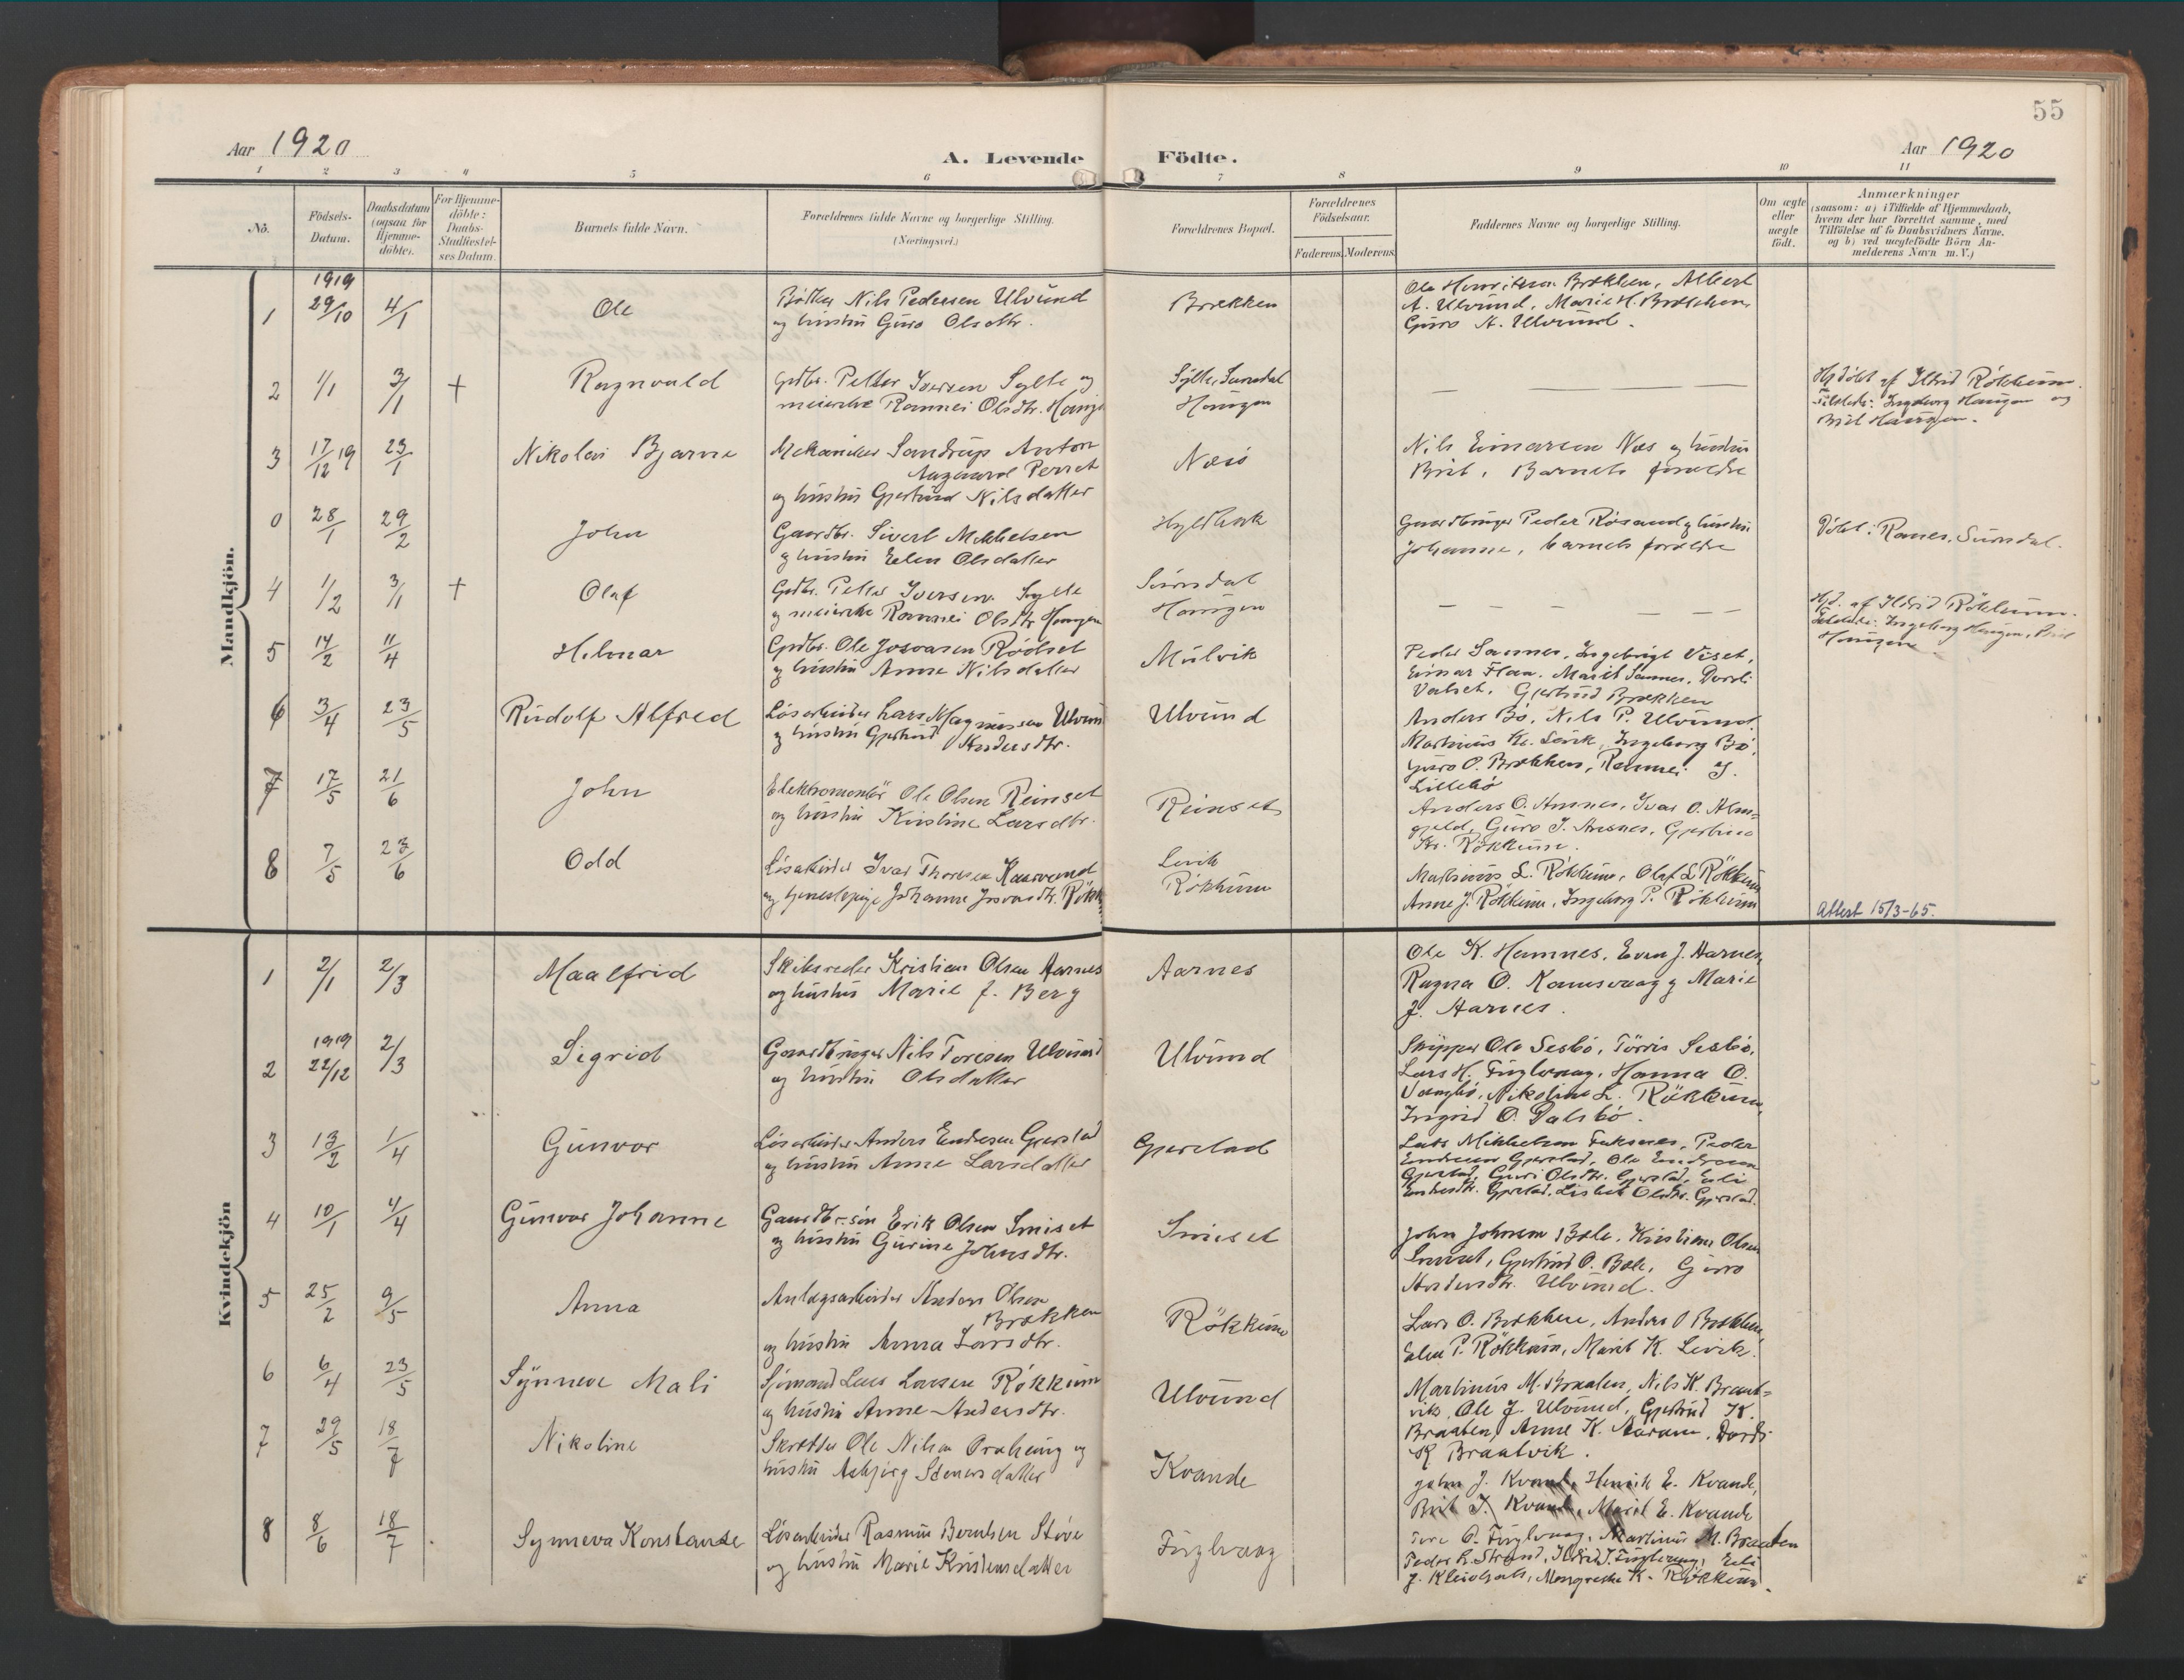 55
Aar 1920
A. Levende Födte.
Aar 1920
1 2 3 4 5 6 7 8 9 10 11
No.
Födsels-
Datum.
Daabsdatum
(ogsaa for
Hjemme-
döbte).
For Hjemme-
döbte:
Daabs-
Stadfæstel-
ses Datum.
Barnets fulde Navn.
Forældrenes fulde Navne og borgerlige Stilling.
(Næringsvei.)
Forældrenes Bopæl.
Forældrenes
Födselsaar.
Faderens. Moderens.
Faddernes Navne og borgerlige Stilling.
Om ægte
eller
uægte
født.
Anmærkninger
(saasom: a) i Tilfælde af Hjemmedaab,
hvem der har forrettet samme, med
Tilföielse af to Daabsvidners Navne,
og b) ved uægtefödte Börn An-
melderens Navn m. V.)
Mandkjön.
1919
1 29/10 4/1 Ole
Nils Pedersen Ulvund
og hustru Guro Olsdtr.
Brækken
Ole Henriksen Brækken, Albert
A. Ulvund, Marie H. Brækken,
Guro A. Ulvund.
2 1/1 3/1 + Ragnvald
Grdbr. Petter Iversen Sylte og
meierske Ramnei Olsdtr. Haugen
Sylte, Surndal
Haugen
— — —
Hj.döbt af Ildrid Rökkum.
Tilstede: Ingeborg Haugen og
Brit Haugen.
3 17/12 19 23/1 Nikolai Bjarne
Mekaniker Sandrup Anton
Aagaard Perret
og hustru Gjertrud Nilsdatter
Næs
Nils Einarsen Næs og hustru
Brit, Barnets forældre
0 28/1 29/2 John
Gaardbr. Sivert Mikkelsen
og hustru Elen Olsdatter
Hyldbak
Gaardbruger Peder Røsand og hustru
Johanne, barnets forældre
Döbt: Ranes, Surndal.
4 1/2 3/1 + Olaf
Grdbr. Petter Iversen Sylte
og meierske Ramnei Olsdtr Haugen
Surndal
Haugen
— — — — —
Hjd. af Ildrid Rökkum.
Tilstede: Ingeborg Haugen, Brit
Haugen.
5 14/2 11/4 Hilmar
Grdbr. Ole Josvasen Rødset
og hustru Anne Nilsdatter
Mulvik
Peder Sannes, Ingebrigt Viset,
Einar Flaa, Marit Sannes, Dordi
Valset, Gjertrud Brækken
6 3/4 23/5 Rudolf Alfred
Lösarbeider Lars Magnussen Ulvund
og hustru Gjertrud Andersdtr.
Ulvund
Anders Bö, Nils P. Ulvund
Martinus Kr. Levik, Ingeborg Bö,
Guro O. Brækken, Ramnei J.
Lillebø
7 17/5 21/6 John
Elektromontör Ole Olsen Reinset
og hustru Kirstine Larsdtr.
Reinset
Anders O. Aasnes, Ivar O. Alm-
gjeld, Guro J. Aasnes, Gjertrud
Kr. Rökkum.
8 7/5 23/6 Odd
Lösarbeider Ivar Thoresen Kaarvand
og tjenestepige Johanne Josvasdtr. Rökkum
Levik
Rökkum
Martinus L. Rökkum, Olaf L Rökkum
Anne J. Rökkum, Ingeborg P. Rökkum
Attest 15/3-65.
Kvindekjön
1 2/1 2/3 Maalfrid
Skibsreder Kristian Olsen Aarnes
og hustru Marie J. Berg
Aarnes
Ole K. Hamnes, Even J. Aarnes,
Ragna O. Kamsvaag og Marie
J. Aarnes.
1919
2 22/12 2/3 Sigrid
Gaardbruger Nils Toresen Ulvund
og hustru Olsdatter
Ulvund
Skipper Ole Sesbö, Törris Sesbö,
Lars H. Fuglvaag, Hanna O.
Nikoline L. Rökkum,
Ingrid O. Dalsbö.
3 13/2 1/4 Gunvor
Lösarbeider Anders Endresen Gjerstad
og hustru Anne Larsdatter
Gjerstad
Lars Mikkelsen Peder
Endresen Gjerstad, Ole Endresen
Gjerstad, Guri Olsdtr. Gjerstad, Eli
Endresdtr. Gjerstad, Lisbet Olsdtr. Gjerstad.
4 10/1 4/4 Gunvor Johanne
Gaardbr.sön Erik Olsen Smiset
og hustru Gurine Johnsdtr.
Smiset
John Johnsen Bæle, Kristian Olsen
Smiset, Gjertrud O. Bæle, Guro
Andersdtr. Ulvund.
5 25/2 9/5 Anna
Anlægsarbeider Anders Olsen
Brækken
og hustru Anna Larsdtr.
Rökkum
Lars O. Brækken, Anders O Brækken,
Elen P. Rökkum, Marit K. Levik.
6 6/4 23/5 Synneve Mali
Sjømand Lars Larsen Rökkum
og hustru Anne Andersdtr.
Ulvund
Martinus M. Braaten, Nils K. Braat-
vik, Ole J. Ulvund, Gjertrud K.
Braaten, Anne K. Aaram, Dordi
K Braatvik.
7 29/5 18/7 Nikoline
Skrædder Ole Nilsen og
hustru Asbjørg Steinersdatter
Kvande
John J. Kvande, Henrik E. Kvande,
Brit J. Kvande, Marit E. Kvande
8 8/6 18/7 Synneva Konstanse
Lösarbeider Rasmus Berntsen Stöve
og hustru Marie Kristensdatter
Fuglvaag
Tore O. Fuglvaag, Martinus M. Braaten
Peder L. Strand, Ildrid J. Fuglvaag, Eli
J. Margrethe K. Rökkum.